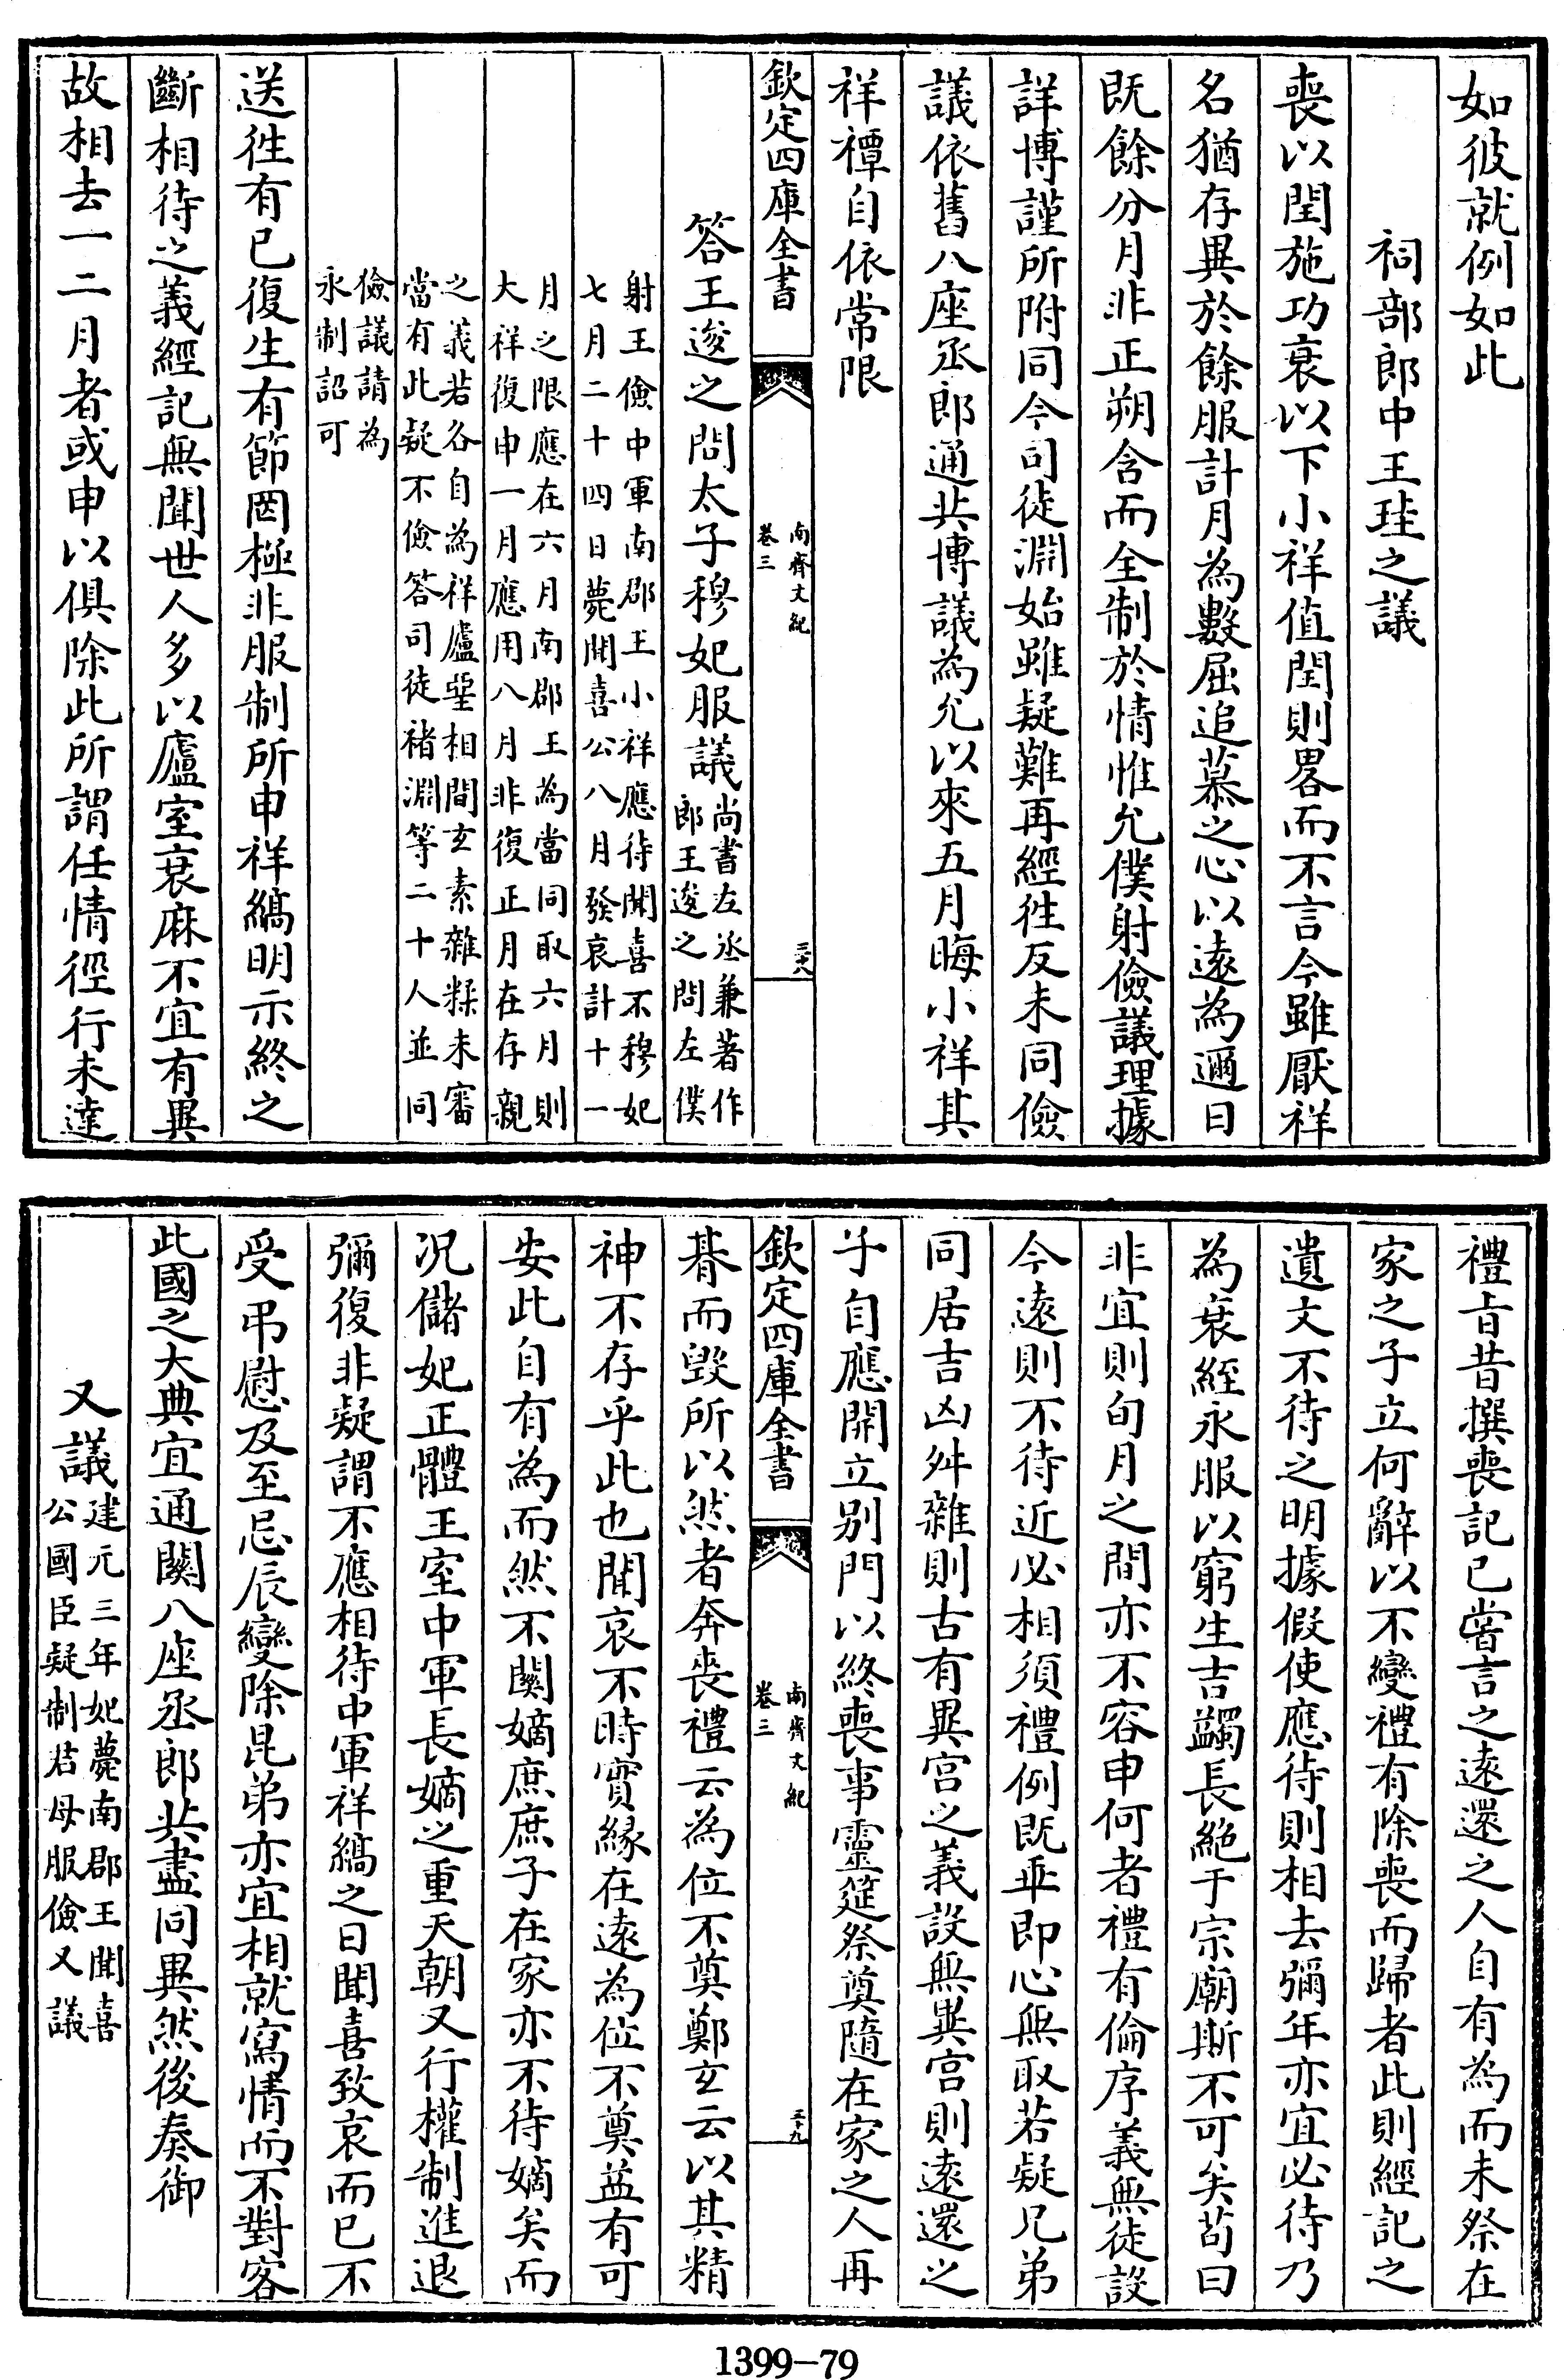 如彼就例如此
祠部郎中王珪之議
喪以閏施功衰以下小祥值閏則畧而不言今雖厭祥
名猶存異於餘服計月為數屈追慕之心以遠為邇日
既餘分月非正朔含而全制於情惟允僕射儉議理據
詳博謹所附同今司徒淵始雖疑難再經往反未同儉
議依舊八座丞郎通共博議為允以來五月晦小祥其
祥禫自依常限
欽定四庫全書
南齊文紀
卷三
三十八
答王逡之問太子穆妃服議
尚書左丞兼著作
郎王逡之問左僕
射王儉中軍南郡王小祥應待聞喜不穆妃
七月二十四日薨聞喜公八月發哀計十一
月之限應在六月南郡王為當同取六月則
大祥復申一月應用八月非復正月在存親
之義若各自為祥廬堊相間玄素雜糅未審
當有此疑不儉答司徒褚淵等二十人並同
儉議請為
永制詔可
送徃有已復生有節罔極非服制所申祥縞明示終之
斷相待之義經記無聞世人多以廬室衰麻不宜有異
故相去一二月者或申以俱除此所謂任情徑行未達
禮旨昔撰喪記已嘗言之遠還之人自有為而未祭在
家之子立何辭以不變禮有除喪而歸者此則經記之
遺文不待之明據假使應待則相去彌年亦宜必待乃
為衰絰永服以窮生吉蠲長絶于宗廟斯不可矣苟曰
非宜則旬月之間亦不容申何者禮有倫序義無徒設
今遠則不待近必相須禮例既乖即心無取若疑兄弟
同居吉凶舛雜則古有異宫之義設無異宫則遠還之
子自應開立别門以終喪事靈筵祭奠隨在家之人再
欽定四庫全書
南齊文紀
卷三
三十九
朞而毁所以然者奔喪禮云為位不奠鄭玄云以其精
神不存乎此也聞哀不時實緣在遠為位不奠益有可
安此自有為而然不關嫡庶庶子在家亦不待嫡矣而
况儲妃正體王室中軍長嫡之重天朝又行權制進退
彌復非疑謂不應相待中軍祥縞之日聞喜致哀而已不
受弔慰及至忌辰變除昆弟亦宜相就寫情而不對客
此國之大典宜通關八座丞郎共盡同異然後奏御
又議
建元三年妃薨南郡王聞喜
公國臣疑制君母服儉又議
1399-79